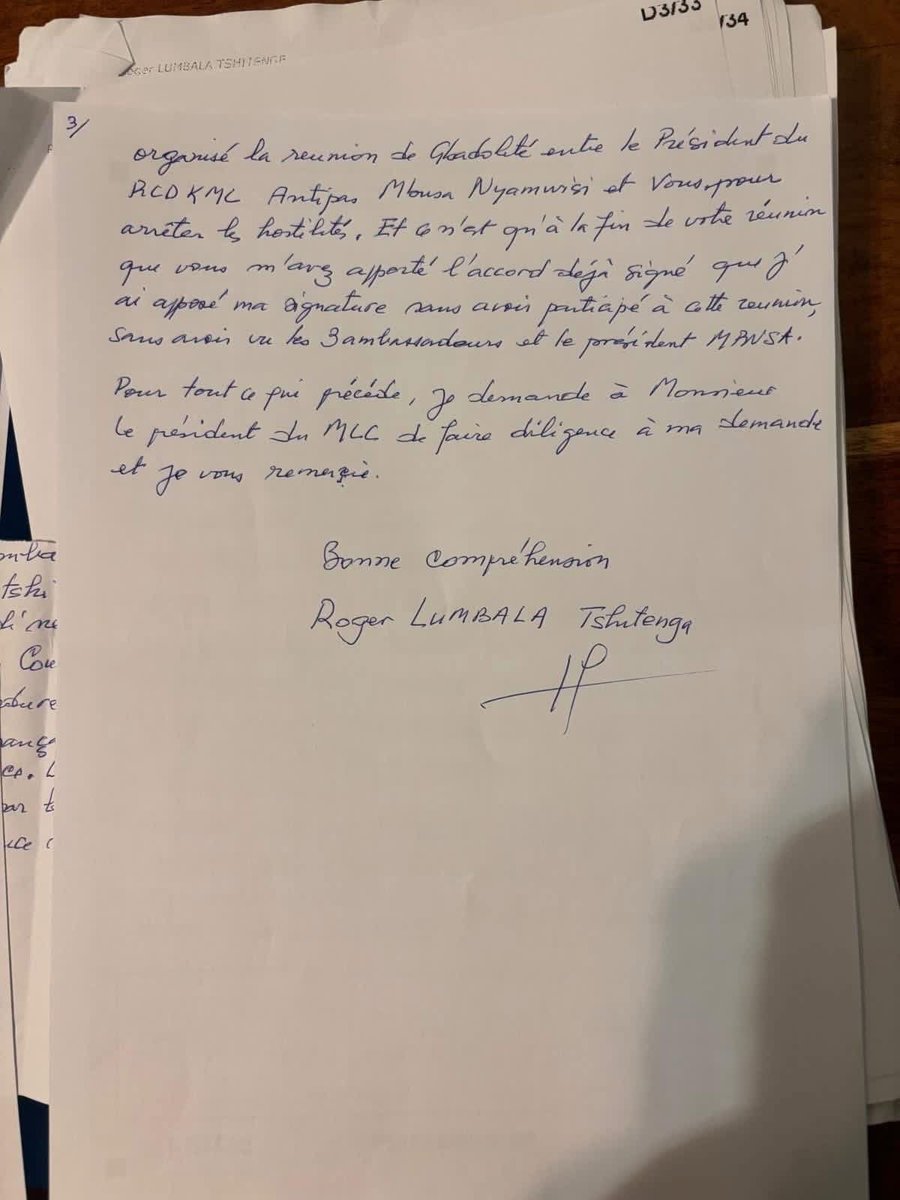 D3/33
/34
Roger LUMBALA TSHITENGE
3/
organisé la reunion de Gbadolité entre le Président du
RCD KML Antipas Mbusa Nyamwisi et Vous, pour
arrêter les hostilités. Et ce n'est qu'à la fin de votre réunion
que vous m'avez apporté l'accord déjà signé que j'
ai apposé ma signature sans avoir participé à cette reunion,
sans avoir vu les 3 ambassadeurs et le président MBUSA.
Pour tout ce qui précède, je demande à Monsieur
le président du MLC de faire diligence à ma demande
et je vous remerçie.
Bonne compréhension
Roger LUMBALA Tshitenga
tshi
Cou